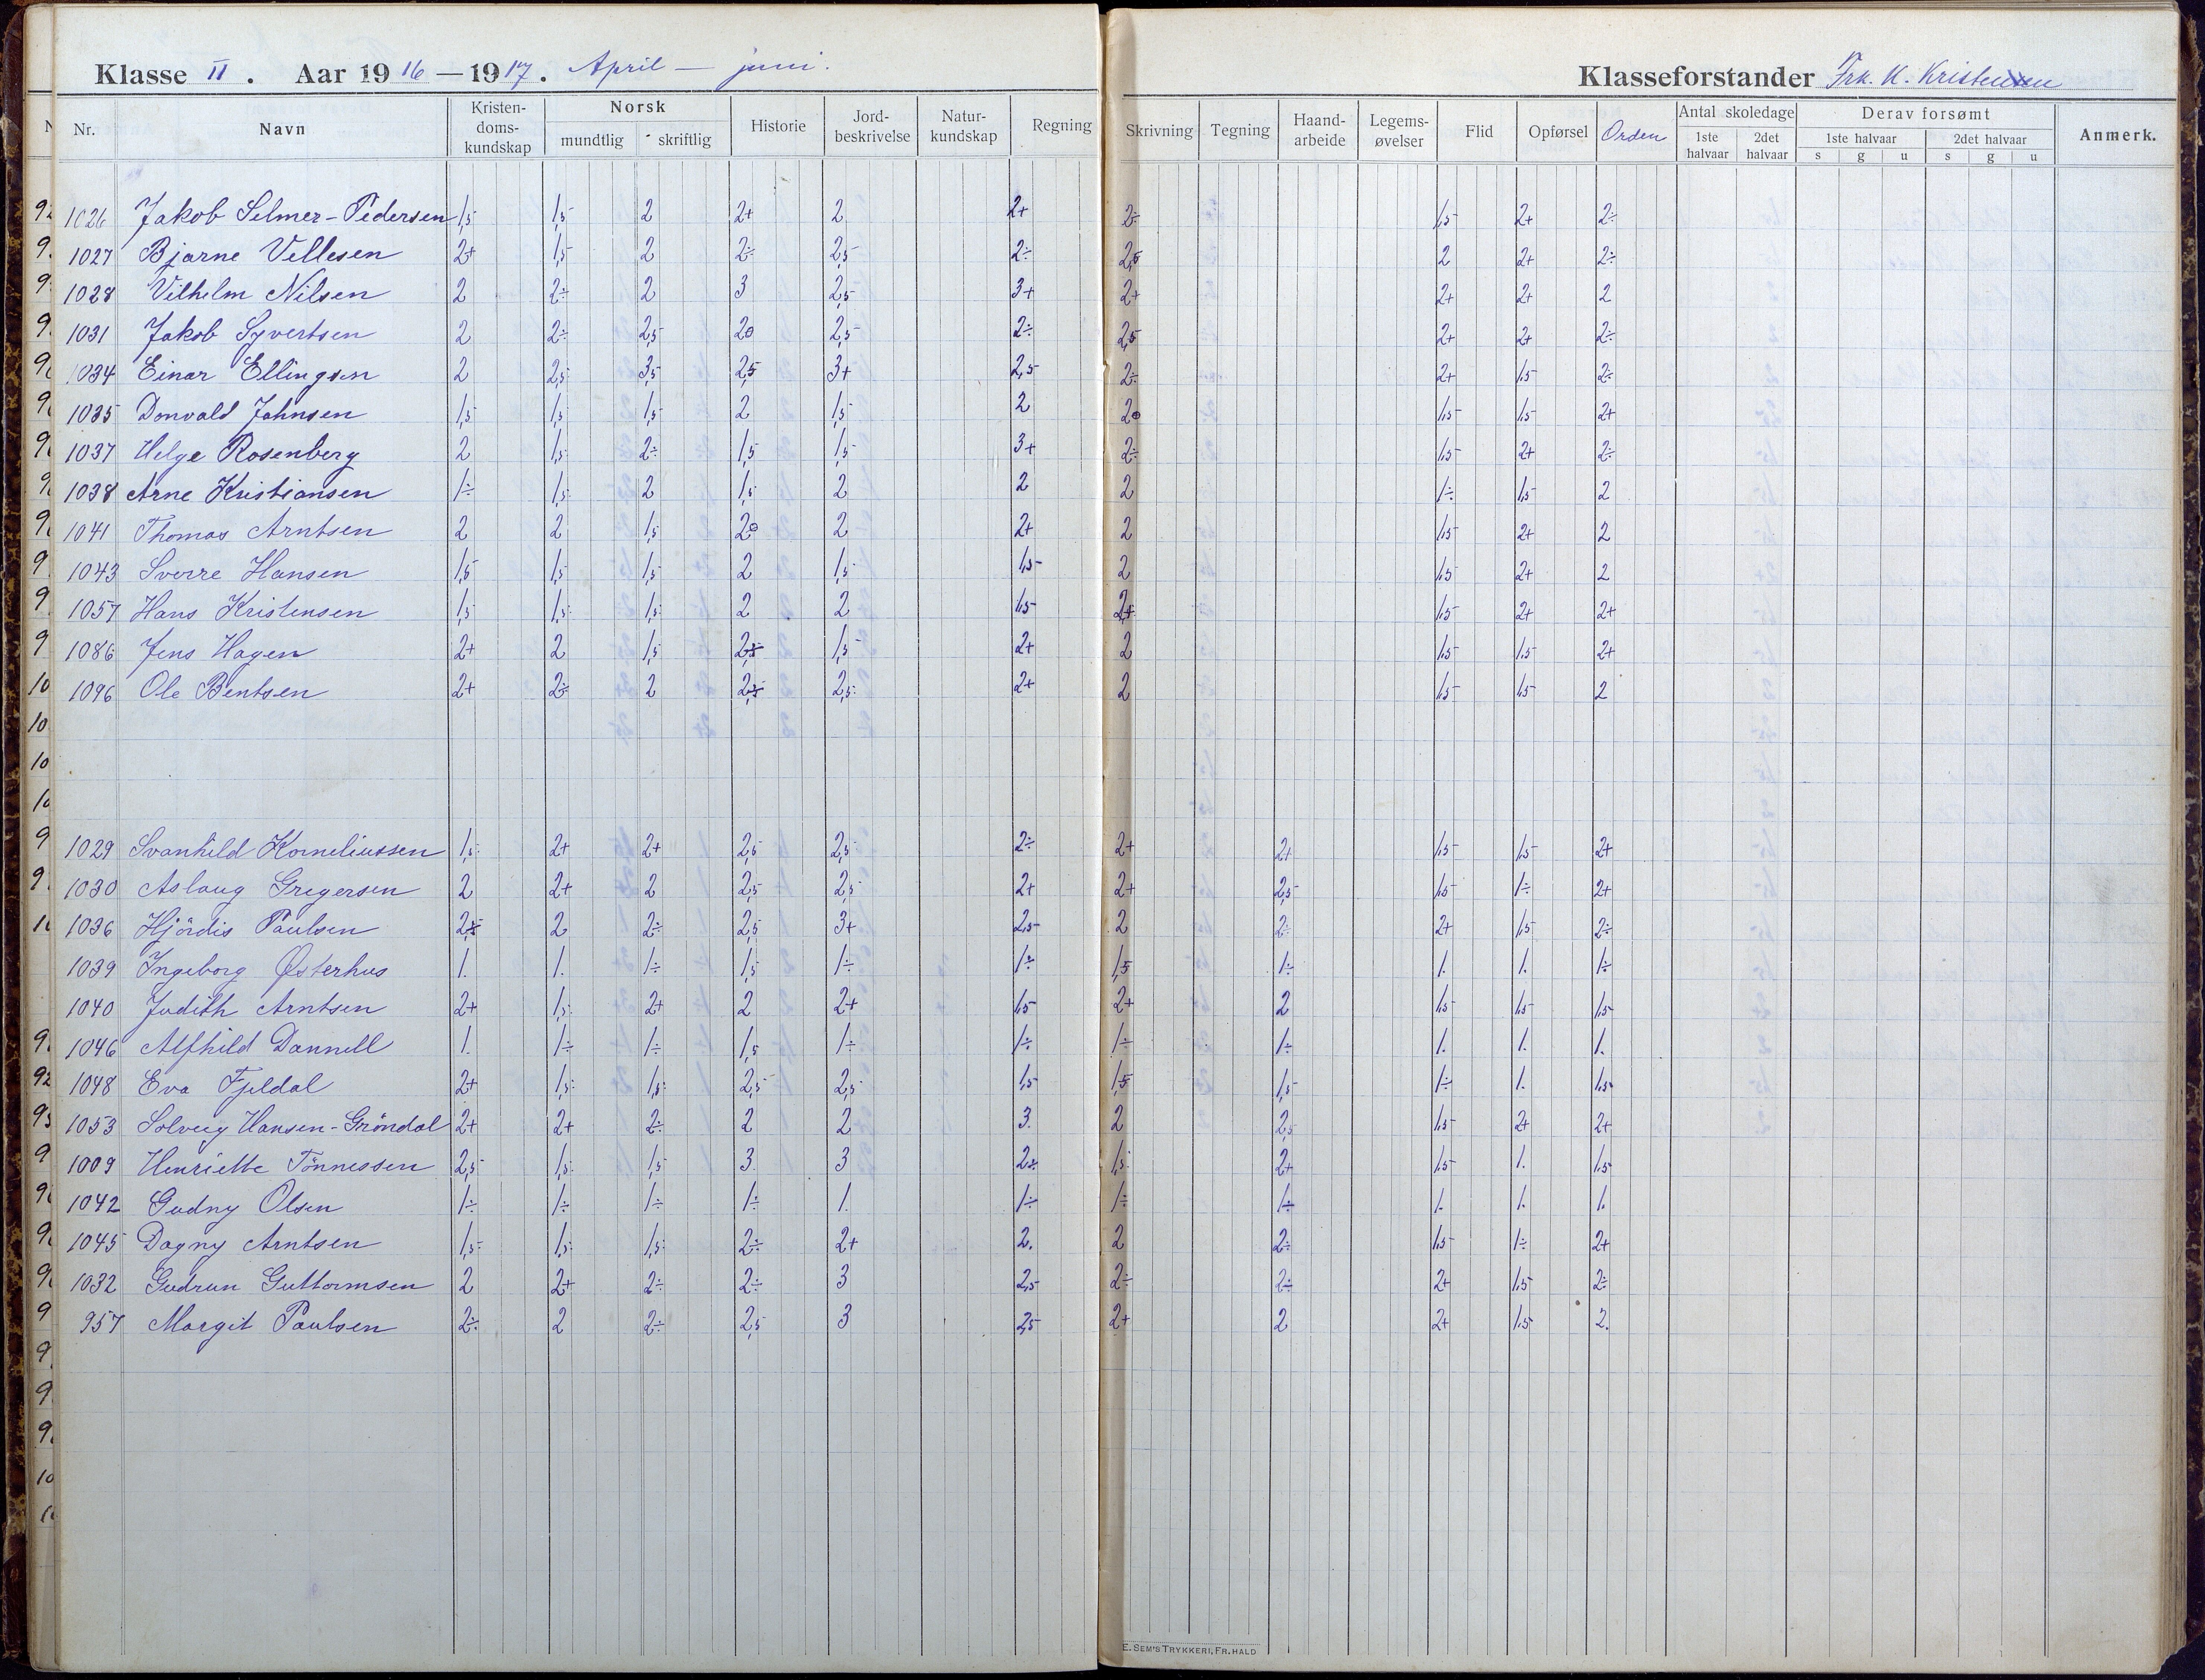 Klasse II. Aar 1916—1917. April — juni. Klasseforstander Frk. K. Kristensen
Nr. Navn Kristendoms-kundskap Norsk mundtlig skriftlig Historie Jord-beskrivelse Natur-kundskap Regning Skrivning Tegning Haand-arbeide Legems-øvelser Flid Opførsel Orden Antal skoledage 1ste halvaar 2det halvaar Derav forsømt 1ste halvaar s g u 2det halvaar s g u Anmerk.
1026 Jakob Selmer-Pedersen 1,5 1,5 2 2+ 2 2+ 2÷ 1,5 2+ 2÷
1027 Bjarne Vellesen 2+ 1,5 2 2÷ 2,5 2÷ 2,5 2 2+ 2÷
1028 Vilhelm Nilsen 2 2÷ 2 3 2,5 3+ 2+ 2+ 2+ 2
1031 Jakob Syvertsen 2 2÷ 2,5 2o 2,5 2÷ 2,5 2+ 2+ 2÷
1034 Einar Ellingsen 2 2,5 3,5 2,5 3+ 2,5 2÷ 2+ 1,5 2÷
1035 Donvald Johnsen 1,5 1,5 1,5 2 1,5 2 2o 1,5 1,5 2+
1037 Helge Rosenberg 2 1,5 2÷ 1,5 1,5 3+ 2÷ 1,5 2+ 2÷
1038 Arne Kristiansen 1÷ 1,5 2 1,5 2 2 2 1÷ 1,5 2
1041 Thomas Arntsen 2 2 1,5 2o 2 2+ 2 1,5 2+ 2
1043 Sverre Hansen 1,5 1,5 1,5 2 1,5 1,5 2 1,5 2+ 2
1057 Hans Kristensen 1,5 1,5 1,5 2 2 1,5 2+ 1,5 2+ 2+
1086 Jens Hagen 2+ 2 1,5 2,5 1,5 2+ 2 1,5 1,5 2+
1096 Ole Bentsen 2+ 2÷ 2 2,5 2,5 2+ 2 1,5 1,5 2
1029 Svanhild Korneliussen 1,5 2+ 2+ 2,5 2,5 2÷ 2+ 2+ 1,5 1,5 2+
1030 Aslaug Gregersen 2 2+ 2 2,5 2,5 2+ 2+ 2,5 1,5 1÷ 2+
1036 Hjördis Paulsen 2,5 2 2÷ 2,5 3+ 2,5 2 2÷ 2+ 1,5 2÷
1039 Ingeborg Østerhus 1. 1. 1÷ 1,5 1÷ 1÷ 1,5 1÷ 1. 1. 1÷
1040 Judith Arntsen 2+ 1,5 2+ 2 2+ 1,5 2+ 2 1,5 1,5 1,5
1046 Alfhild Dannell 1. 1÷ 1÷ 1,5 1÷ 1÷ 1÷ 1÷ 1. 1. 1.
1048 Eva Fjeldal 2+ 1,5 1,5 2,5 2,5 1,5 1,5 1,5 1÷ 1. 1,5
1053 Solveig Hansen-Gröndal 2+ 2+ 2÷ 2 2 3. 2 2,5 1,5 2+ 2+
1009 Henriette Tönnessen 2,5 1,5 1,5 3 3 2÷ 1,5 2+ 1,5 1. 1,5
1042 Gudny Olsen 1÷ 1÷ 1÷ 1÷ 1. 1÷ 1÷ 1÷ 1. 1. 1.
1045 Dagny Arntsen 1,5 1,5 1,5 2÷ 2+ 2. 2 2÷ 1,5 1÷ 2+
1032 Gudrun Guttormsen 2 2+ 2÷ 2÷ 3 2,5 2÷ 2÷ 2+ 1,5 2÷
957 Margit Paulsen 2÷ 2 2÷ 2,5 3 2,5 2+ 2 2+ 1,5 2.
E. SEM'S TRYKKERI, FR. HALD